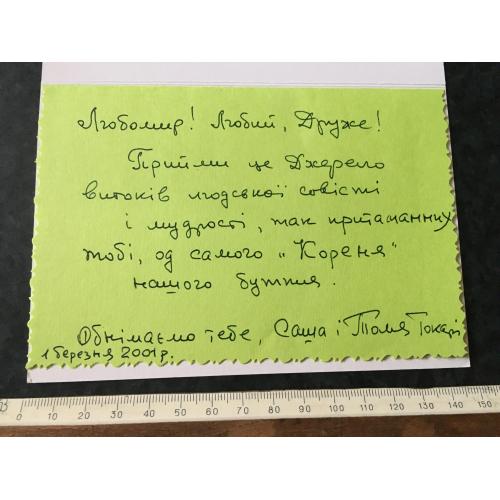 Любомир! Любий, Друже!
Прийми це Джерело
витоків людської совісті
і мудрості, так притаманних
тобі, од самого "Кореня"
нашого буття.
Обнімаємо тебе, Саша і Толя Токарі
1 березня 2001 р.
0 10 20 30 40 50 60 70 80 90 100 110 120 130 140 150